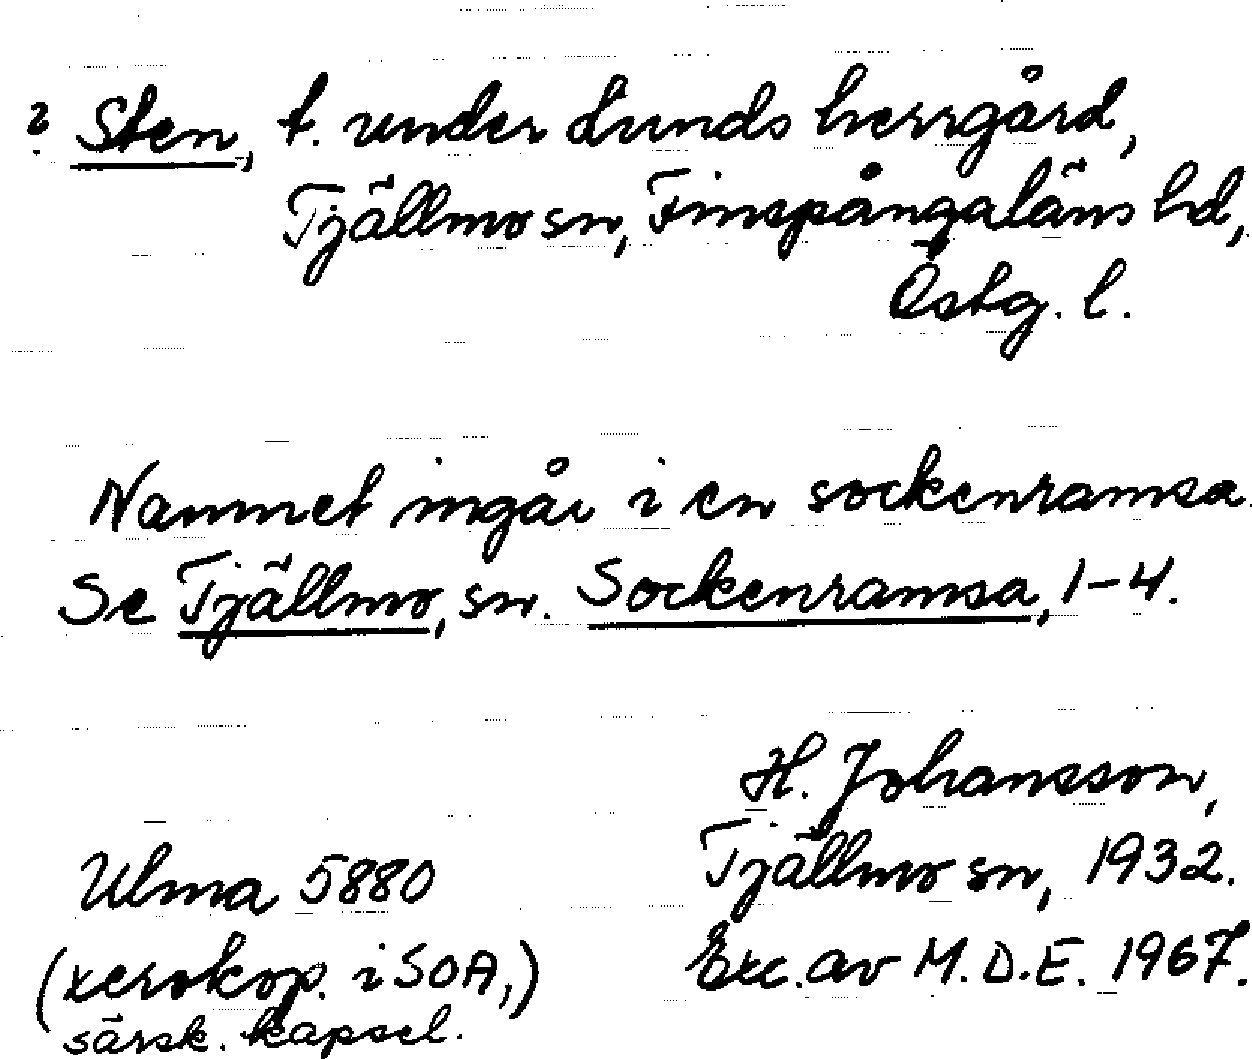 ? Sten, t. under Lunds herrgård,
Tjällmo sn, Finspångaläns hd,
Östg. l.
Namnet ingår i en sockenramsa.
Se Tjällmo, sn. Sockenramsa, 1-4.
H. Johansson,
Tjällmo sn, 1932.
Exc. av M.D.E. 1967.
Ulma 5880
(xerokop. i SOA,)
särsk. kapsel.